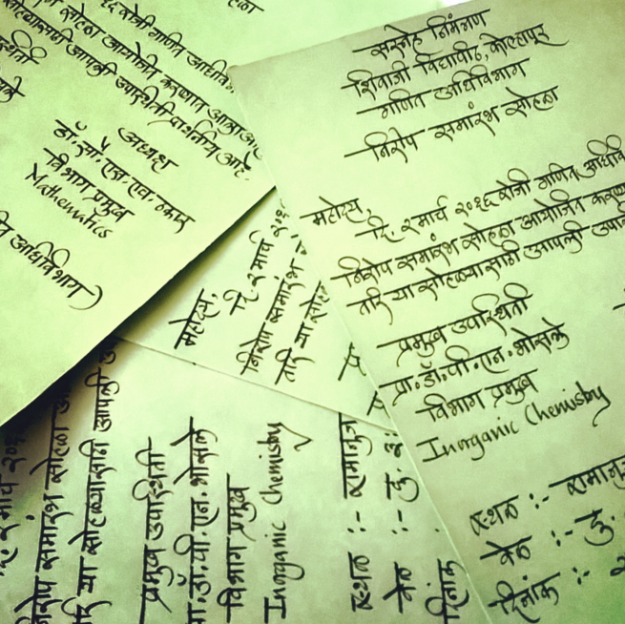 सस्नेह निमंत्रण
शिवाजी विद्यापीठ, कोल्हापूर
गणित अधिविभाग
निरोप समारंभ सोहळा
महोदय,
दि. २ मार्च २०१६ रोजी गणित अधिवि
निरोप समारंभ सोहळा आयोजित करण्या
तरि या सोहळ्यासाठी आपली उपस्
प्रमुख उपस्थिती
प्रा. डॉ. पी. एन. भोसले
विभाग प्रमुख
Inorganic Chemistry
स्थळ :- रामानुज
वेळ :- दु.
दिनांक :- २
रोजी गणित अधिवि
सोहळा आयोजित करण्यात आला आहे
सोहळ्यासाठी आपली उपस्थिती प्रार्थनिय आहे.
अध्यक्ष
डॉ. सौ. एस. एच. ठकार
विभाग प्रमुख
Mathematics
त अधिविभाग)
महोदय,
दि. २ मार्च २०१६
निरोप समारंभ
तरि या सोह
दि. २ मार्च २०१६
निरोप समारंभ सोहळा
तरि या सोहळ्यासाठी आपली उप
प्रमुख उपस्थिती
प्रा. डॉ. पी. एन. भोसले
विभाग प्रमुख
Inorganic Chemistry
स्थळ :- रामानुज
वेळ :- दु. ३:
दिनांक :